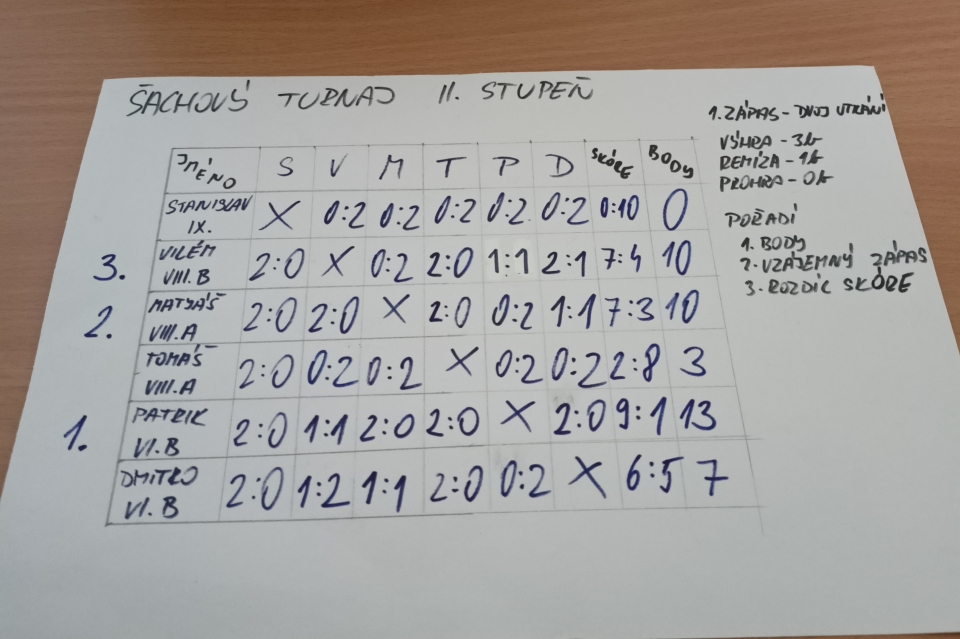 ŠACHOVÝ TURNAJ II. STUPEŇ
1. ZÁPAS - DVOJ UTKÁNÍ
VÝHRA - 3b
REMÍZA - 1b
PROHRA - 0b
POŘADÍ
1. BODY
2. VZÁJEMNÝ ZÁPAS
3. ROZDÍL SKÓRE
JMÉNO S V M T P D SKÓRE BODY
STANISLAV IX. X 0:2 0:2 0:2 0:2 0:2 0:10 0
3. VILÉM VIII.B 2:0 X 0:2 2:0 1:1 2:1 7:4 10
2. MATYÁŠ VIII.A 2:0 2:0 X 2:0 0:2 1:1 7:3 10
TOMÁŠ VIII.A 2:0 0:2 0:2 X 0:2 0:2 2:8 3
1. PATRIK VI.B 2:0 1:1 2:0 2:0 X 2:0 9:1 13
DMITRO VI.B 2:0 1:2 1:1 2:0 0:2 X 6:5 7